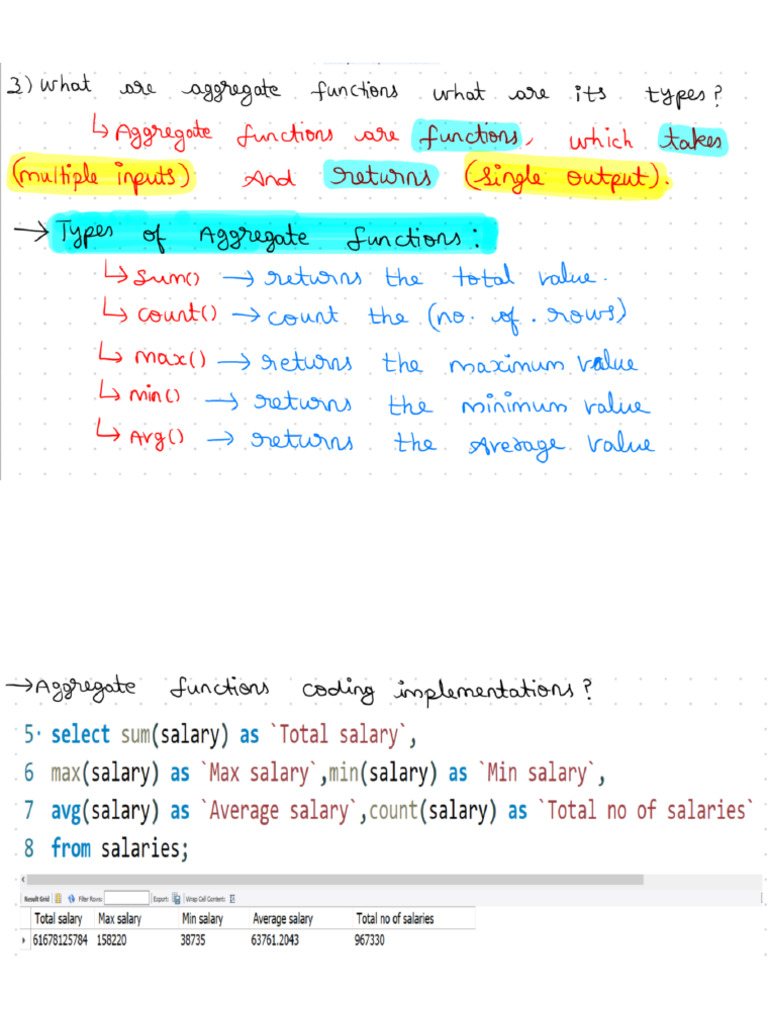 3) What are aggregate functions what are its types?
↳ Aggregate functions are functions, which takes
(multiple inputs) And returns (single output).
→ Types of Aggregate functions:
↳ sum() → returns the total value.
↳ count() → count the (no. of. rows)
↳ max() → returns the maximum value
↳ min() → returns the minimum value
↳ Avg() → returns the Average value
→ Aggregate functions coding implementations?
5 select sum(salary) as `Total salary`,
6 max(salary) as `Max salary`,min(salary) as `Min salary`,
7 avg(salary) as `Average salary`,count(salary) as `Total no of salaries`
8 from salaries;
Result Grid Filter Rows: Export: Wrap Cell Content:
Total salary Max salary Min salary Average salary Total no of salaries
61678125784 158220 38735 63761.2043 967330